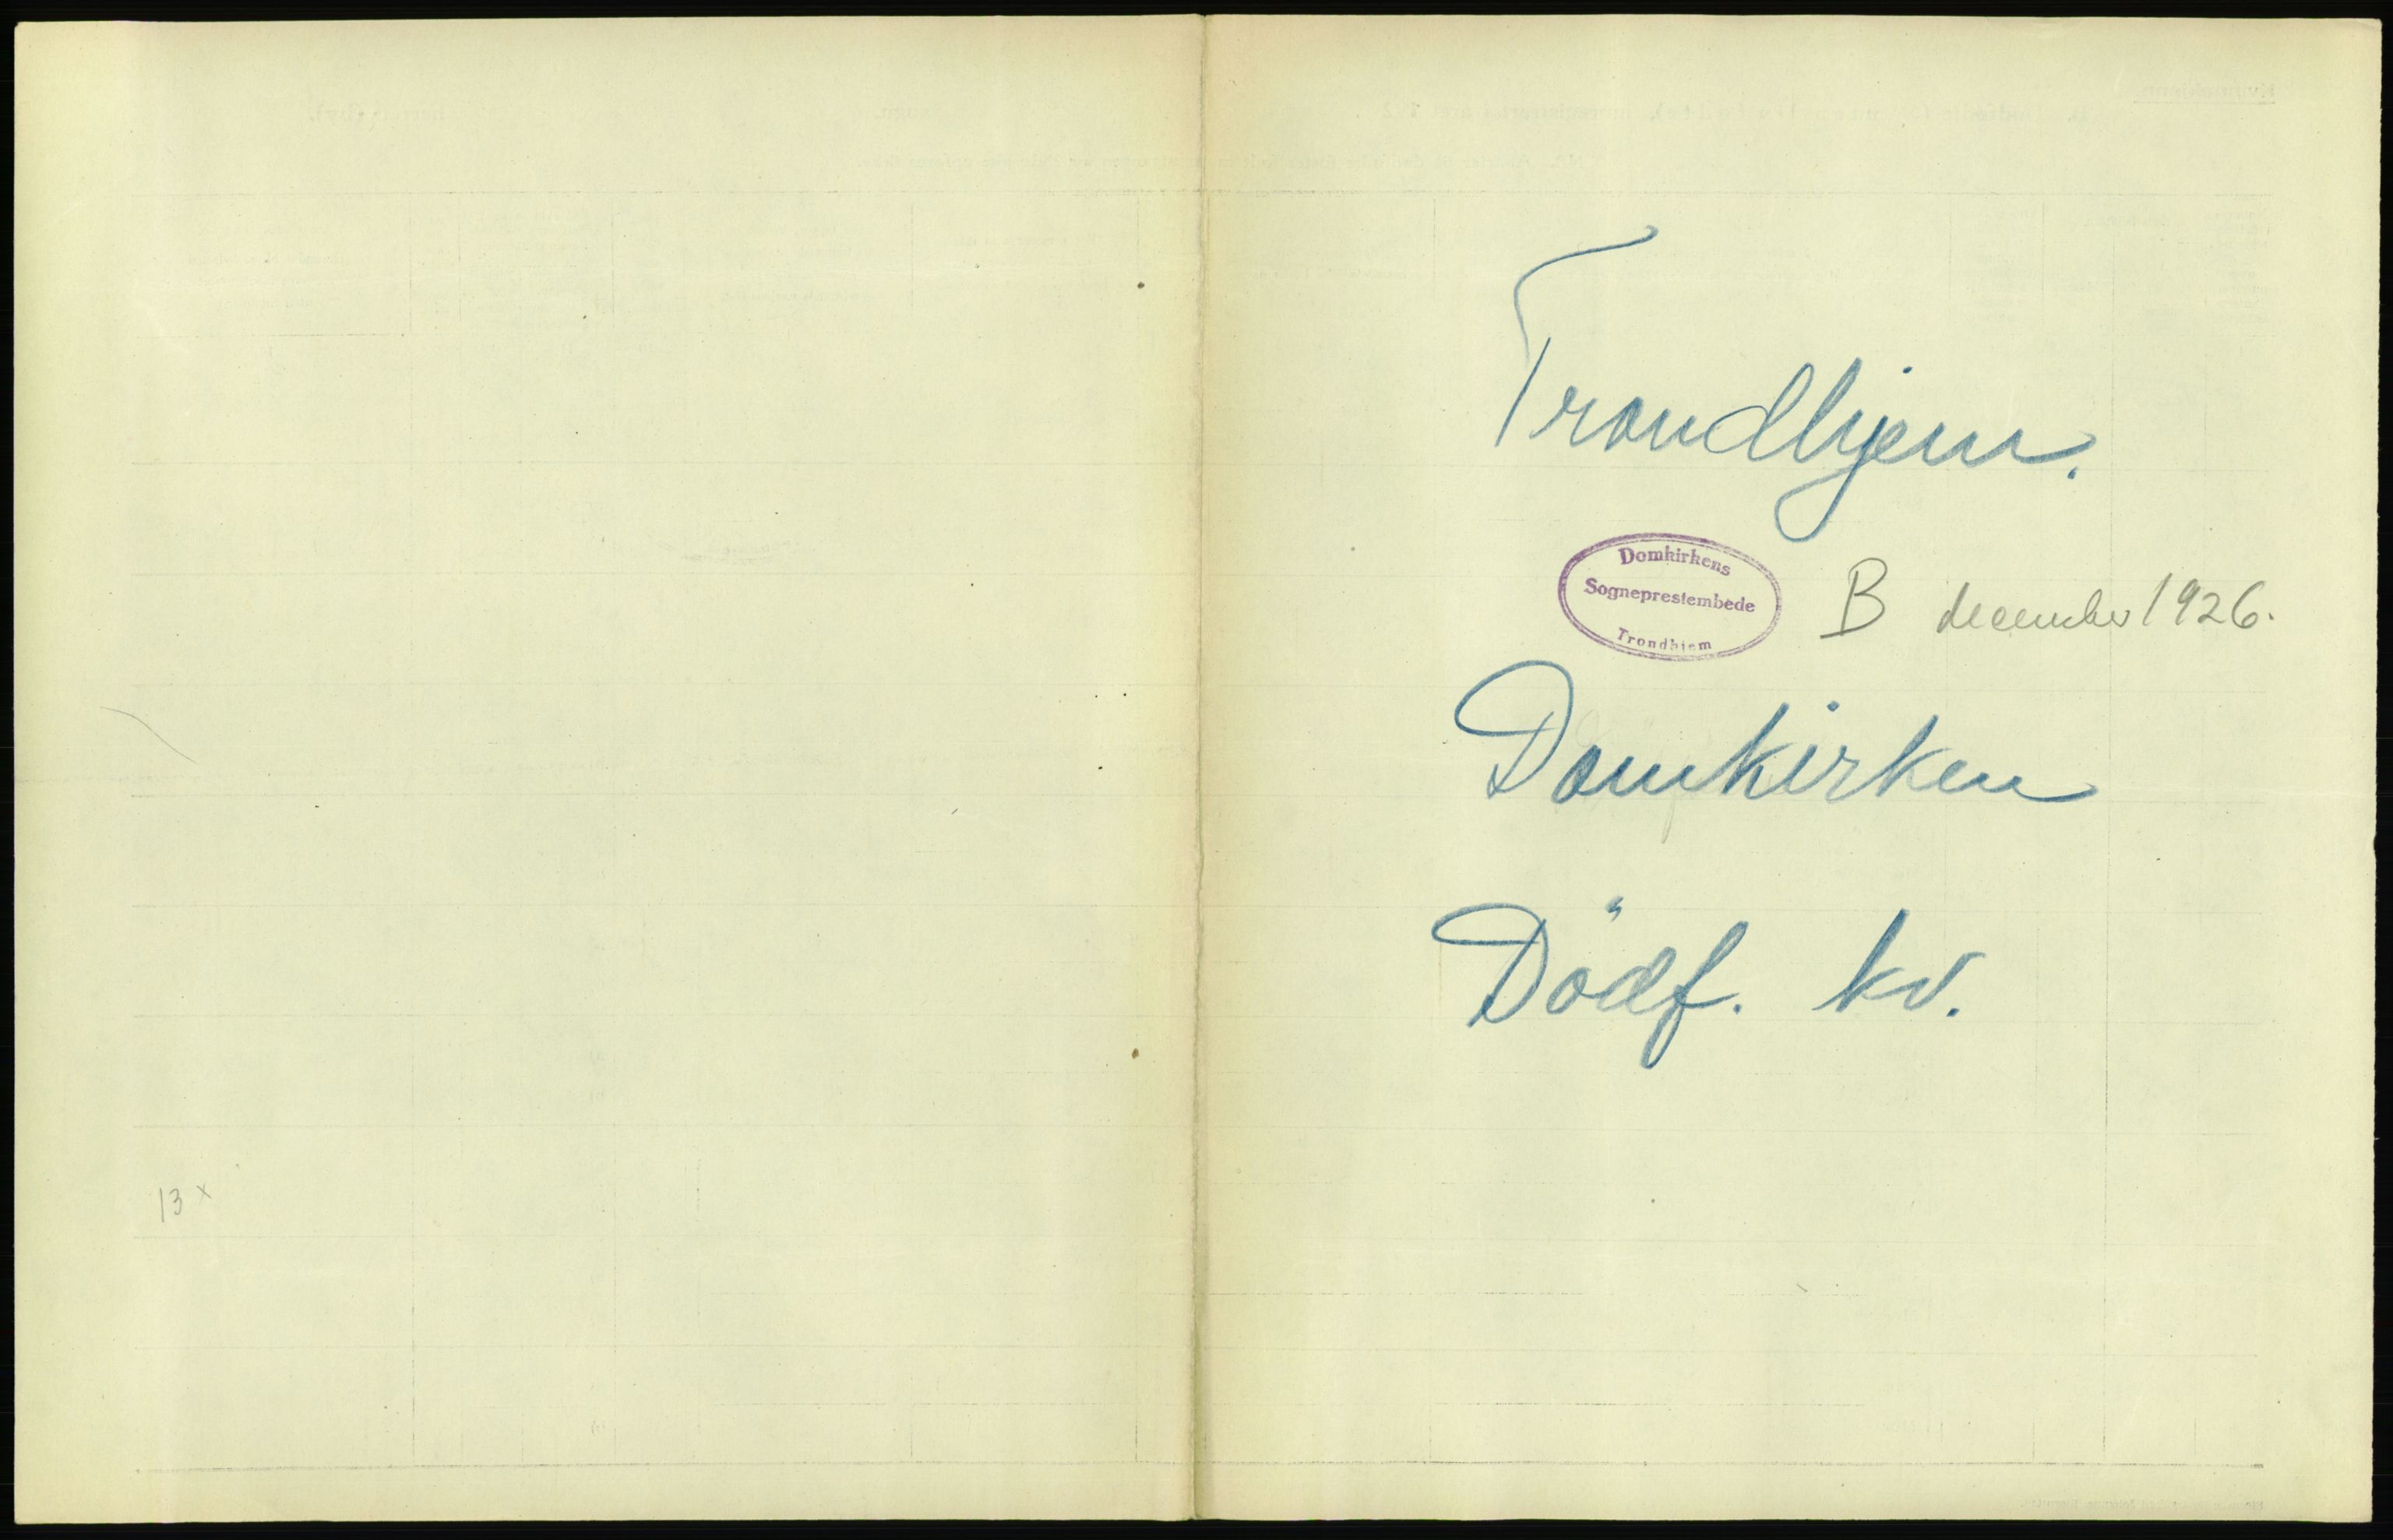 13 x
Trondhjem.
Domkirkens
Sogneprestembede
Trondhjem
B december 1926.
Domkirken
Dödf. kv.